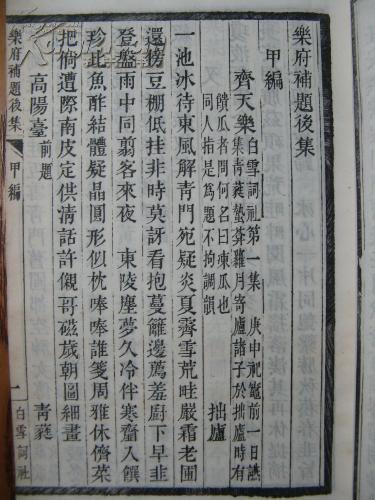 樂府補題後集
甲編
齊天樂 白雪詞社第一集 庚申祀竈前一日讌
集青蕤蟄莽蘿月寄廬諸子於拙廬時有
饋瓜者問何名曰東瓜也
同人指是爲題不拘調韻
拙廬
一池冰待東風解青門宛疑炎夏霽雪荒畦嚴霜老圃
還傍豆棚低挂非時莫訝看抱蔓籬邊薦羞廚下早韭
登盤雨中同翦客來夜 東陵塵夢久冷伴寒韲入饌
珍此魚酢結體疑晶圓形似枕唪唪誰箋周雅休儕菜
把倘遭際南皮定供淸話許儭哥磁歲朝圖細畫
高陽臺 前題 青蕤
樂府補題後集 甲編 一 白雪詞社